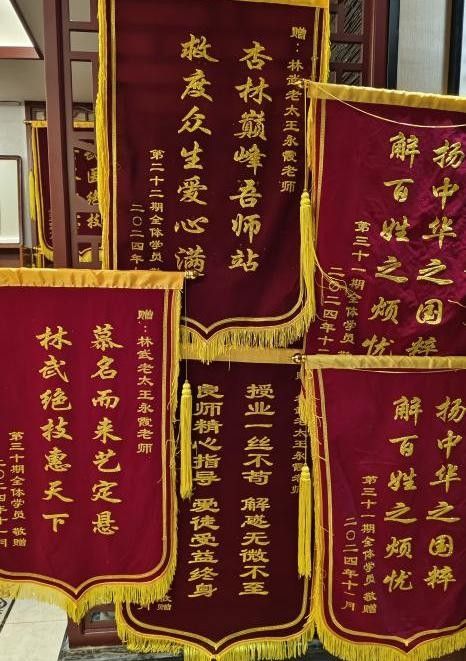 赠：林武老太王永霞老师
杏林巅峰吾师站
救度众生爱心满
第二十二期全体学员
二〇二四年
扬中华之国粹
解百姓之烦忧
第三十一期全体学员 敬赠
二〇二四年十
赠：林武老太王永霞老师
慕名而来艺定悬
林武绝技惠天下
第三十期全体学员 敬赠
二〇二四年十一月
老太王永霞老师
授业一丝不苟 解惑无微不至
良师精心指导 爱徒受益终身
敬赠
扬中华之国粹
解百姓之烦忧
第三十一期全体学员 敬赠
二〇二四年十一月
绝技